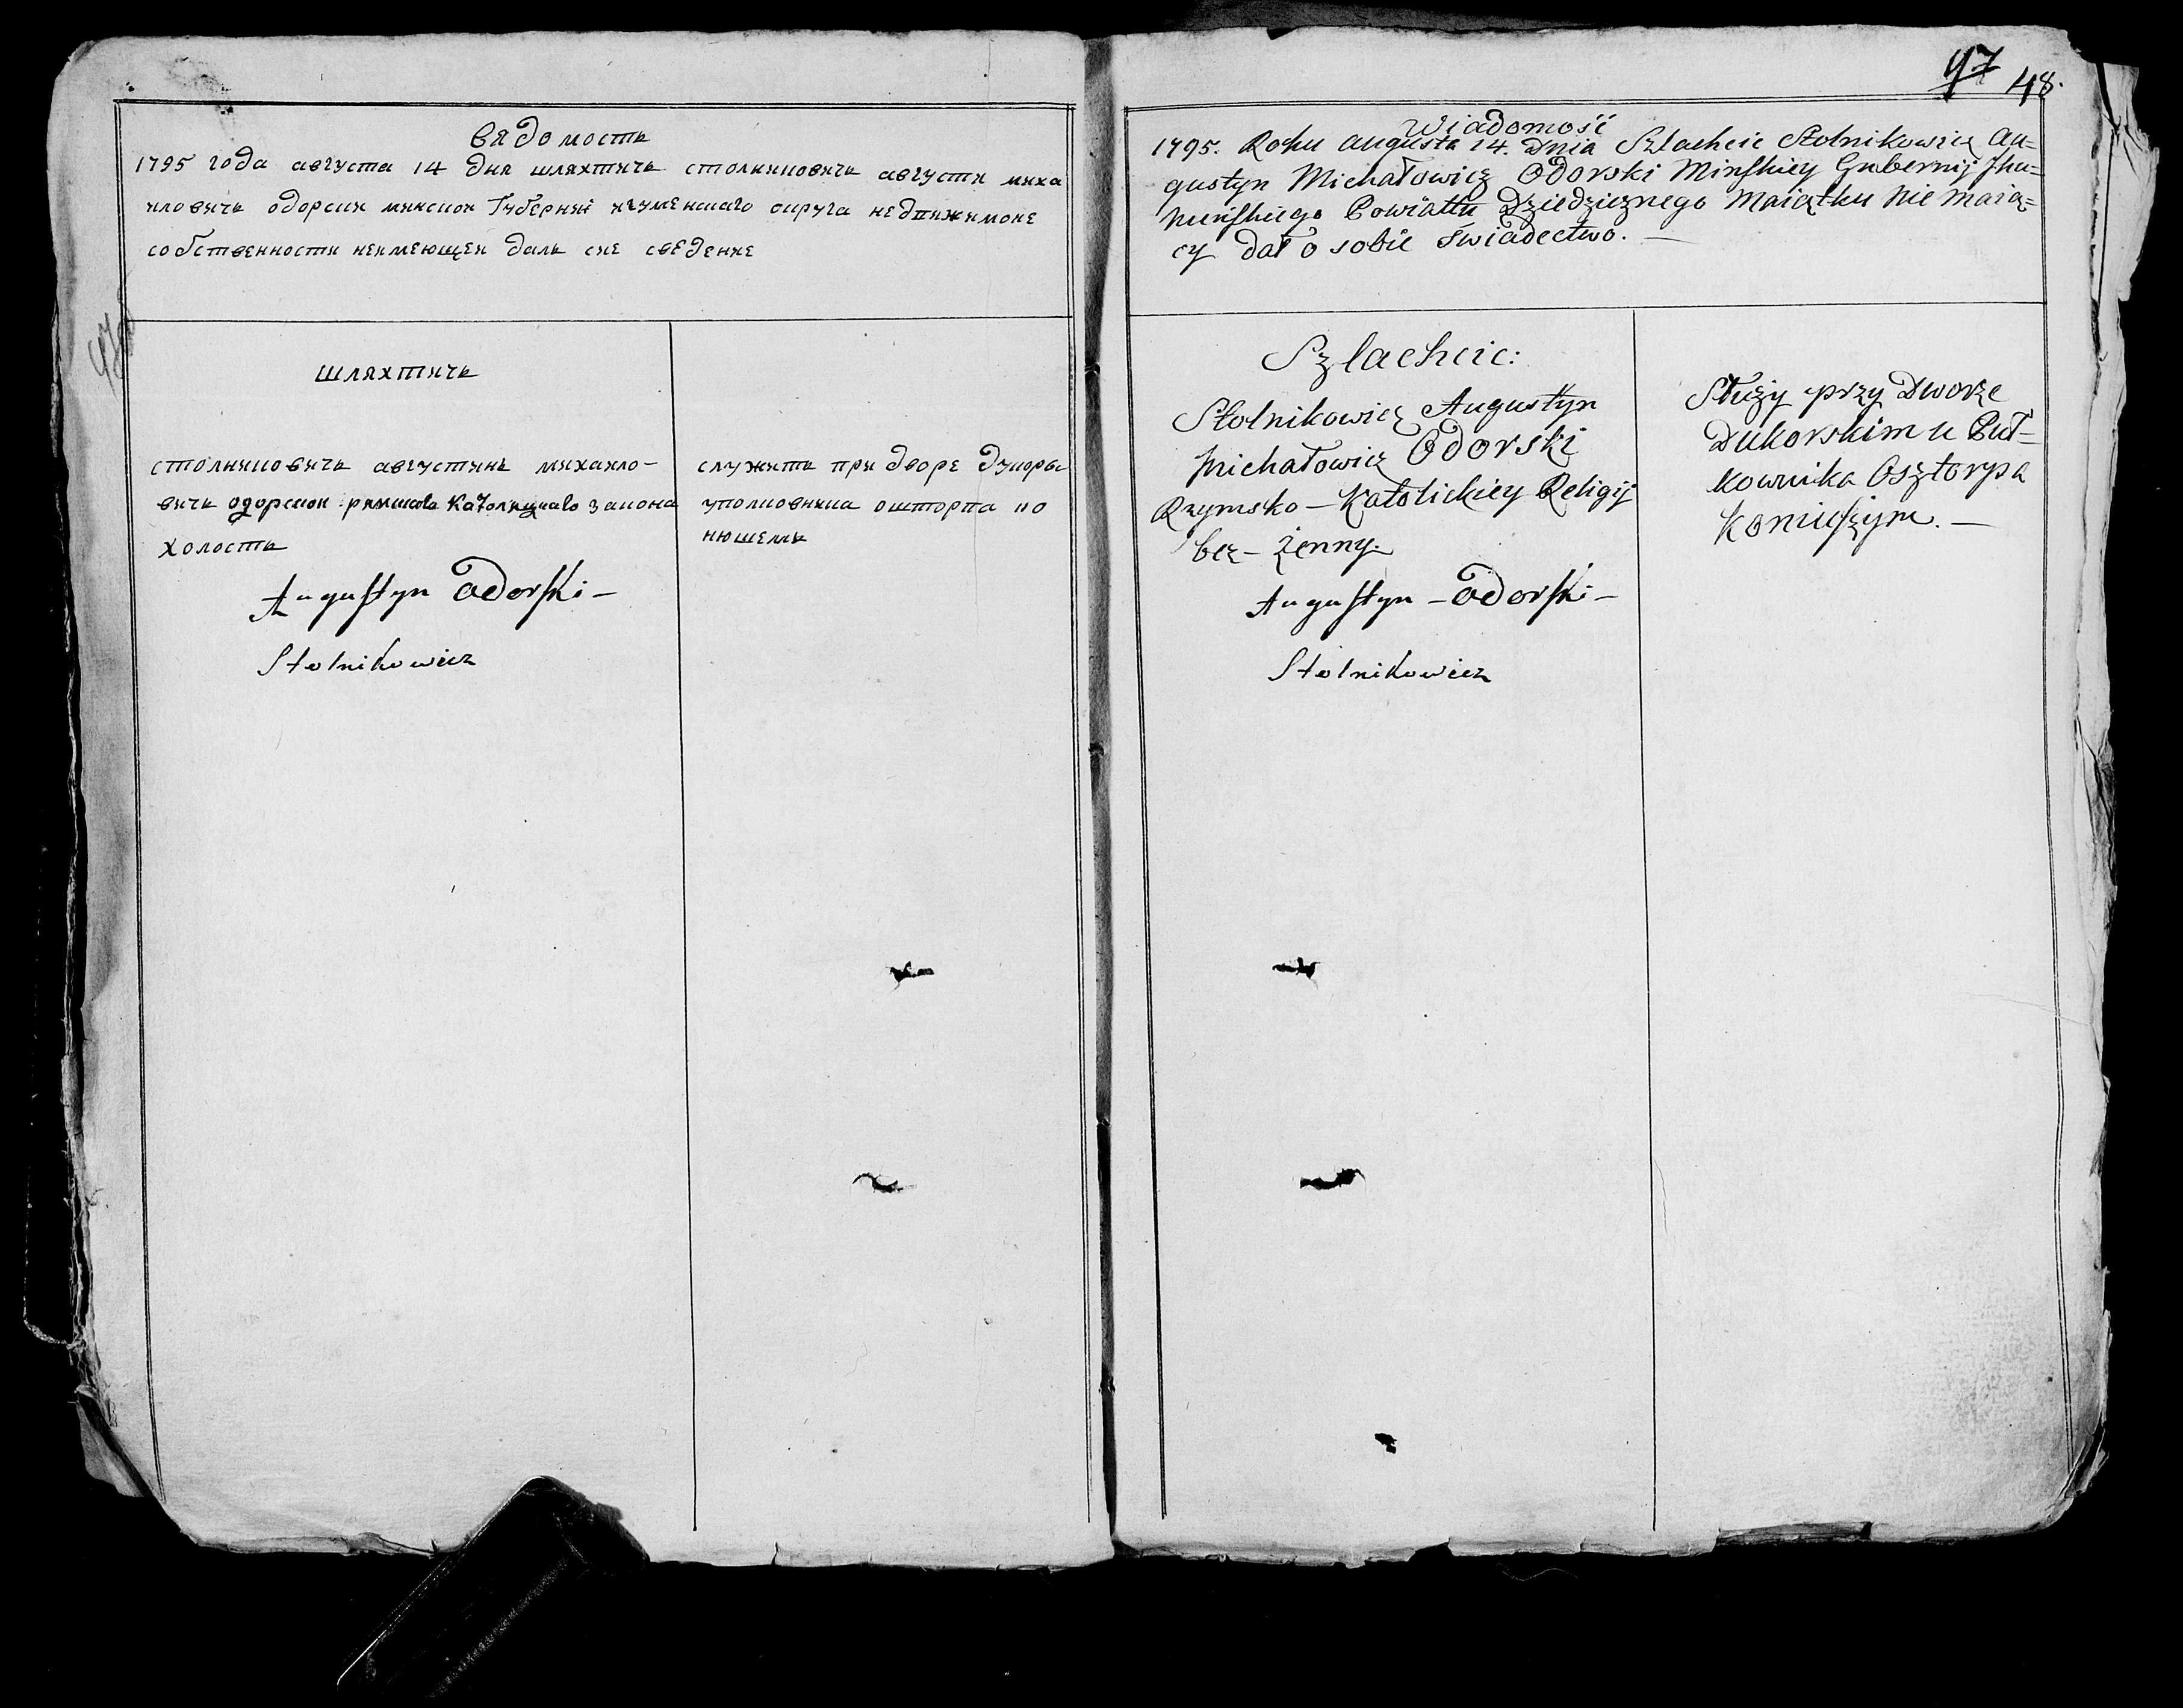 вядомость
1795 года августа 14 дня шляхтичь столниковичь августи миха
иловичь одорски минскои Губерниї игуменскаго округа недвижимоие
собственности неимеющеи даль сие сведение
шляхтичь
столниковичь августинь михаило-
вичь одорскои римскаго католицкаго закона
холость
служить при дворе дукорь
уполковника ошторпа ко
нюшемь
Augustyn Odorski -
Stolnikowicz
47 48.
Wiadomość
1795. Roku Augusta 14. Dnia Szlachcic Stolnikowicz Au=
gustyn Michałowicz Odorski Minskiey Gubernij Ihu=
minskiego Powiattu Dziedzicznego Maiątku nie maią=
cy dał o sobie świadectwo. —
Szlachcic:
Stolnikowicz Augustyn
Michałowicz Odorski
Rzymsko - Katolickiey Religij
bez - żenny.
Augustyn - Odorski -
Stolnikowicz
Służy przy Dworze
Dukorskim u Puł=
kownika Osztorpa
Koniuszym. —